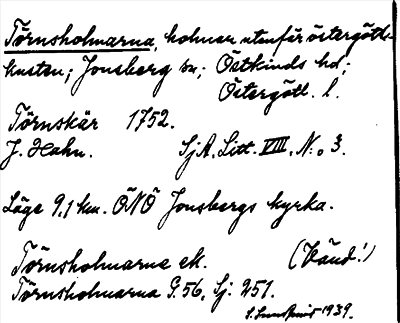 Törnsholmarna, holmar utanför östergötl.-
kusten; Jonsberg sn; Östkinds hd;
Östergötl. l.
Törnskär 1752.
J. Hahn. SjA. Litt. VIII. N:o 3.
Läge 9,1 km. ÖNÖ Jonsbergs kyrka.
Törnsholmarna ek. (Vänd!)
Törnsholmarna G. 56, Sj: 251.
1939.